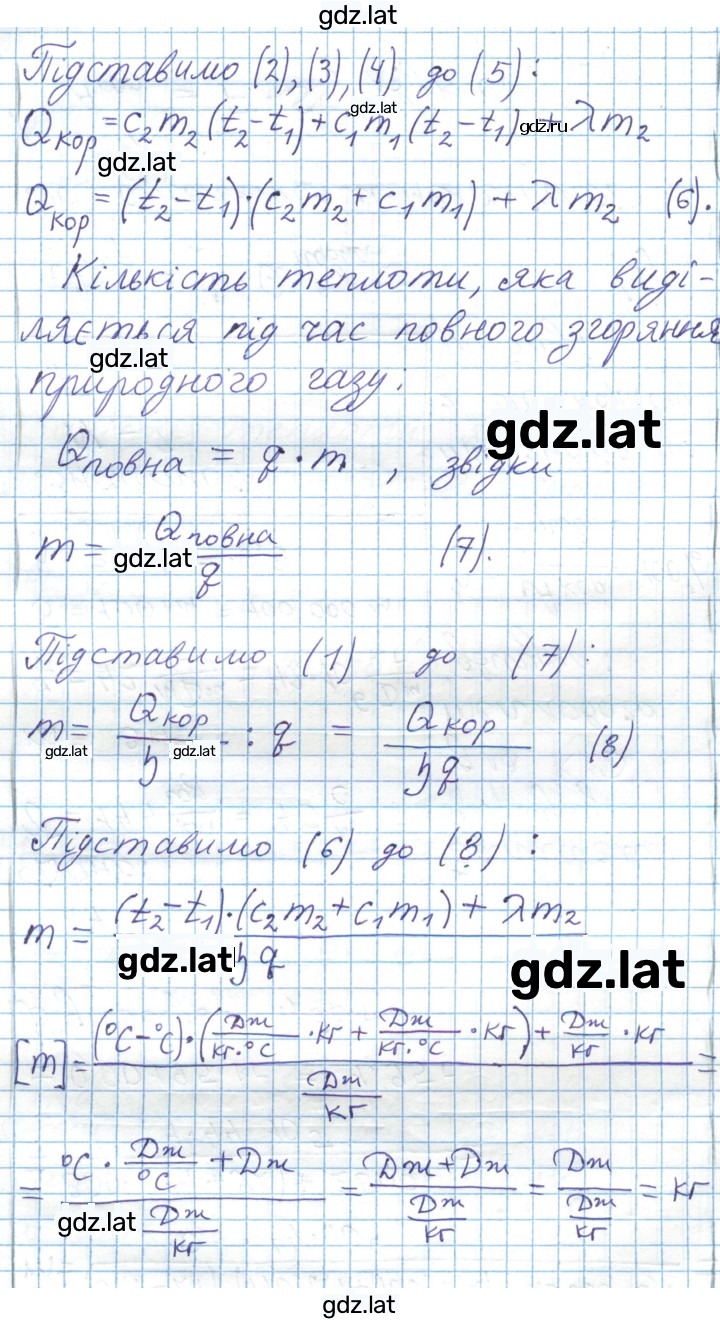 gdz.lat
Підставимо (2), (3), (4) до (5):
gdz.lat
Qкор = c₂m₂(t₂-t₁)+c₁m₁(t₂-t₁)+λm₂
gdz.ru
gdz.lat
Qкор = (t₂-t₁)·(c₂m₂+c₁m₁)+λm₂ (6).
Кількість теплоти, яка виді-
ляється під час повного згоряння
gdz.lat
природного газу:
gdz.lat
Qповна = q·m, звідки
m = Qповна/q (7).
gdz.lat
Підставимо (1) до (7):
m = Qкор/η : q = Qкор/ηq (8)
gdz.lat gdz.lat
Підставимо (6) до (8):
m = ((t₂-t₁)·(c₂m₂+c₁m₁)+λm₂)/ηq
gdz.lat
gdz.lat
[m] = ((°C-°C)·(Дж/кг·°C ·кг + Дж/кг·°C ·кг) + Дж/кг ·кг)/(Дж/кг) =
= (°C · Дж/°C + Дж)/(Дж/кг) = (Дж+Дж)/(Дж/кг) = Дж/(Дж/кг) = кг
gdz.lat
gdz.lat